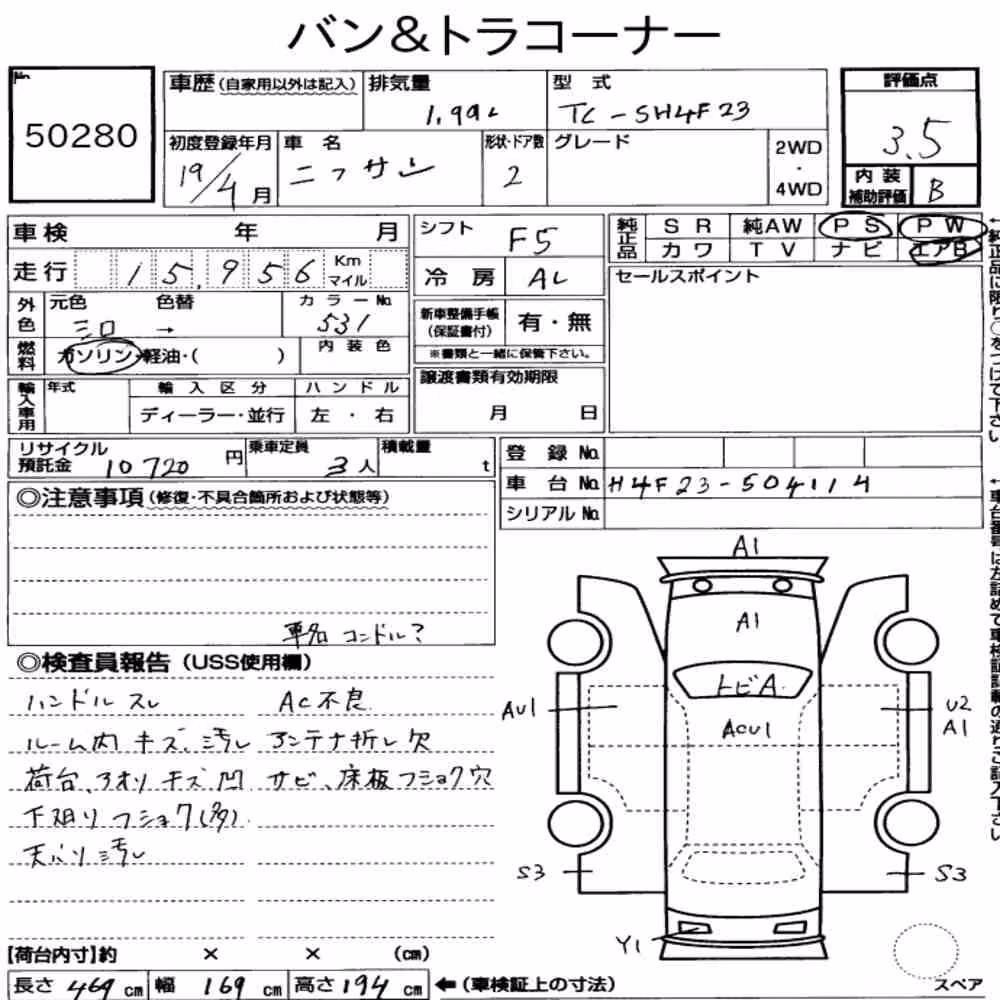 バン&トラコーナー
No. 50280
車歴 (自家用以外は記入) 排気量 1.99L 型式 TC-SH4F23
評価点 3.5
初度登録年月 19/4月 車名 ニッサン 形状・ドア数 2 グレード 2WD・4WD
内装補助評価 B
車検 年 月
シフト F5
純正品 SR 純AW PS PW
カワ TV ナビ エアB
走行 15,956 Km マイル
冷房 AC
セールスポイント
外色 元色 シロ 色替 → カラーNo. 531
新車整備手帳(保証書付) 有・無
燃料 ガソリン・軽油・( ) 内装色
※書類と一緒に保管下さい。
輸入車用 年式 輸入区分 ハンドル
ディーラー・並行 左・右
譲渡書類有効期限
月 日
リサイクル預託金 10720円 乗車定員 3人 積載量 t
登録No.
車台No. H4F23-504114
シリアルNo.
◎注意事項(修復・不具合箇所および状態等)
車名 コンドル?
◎検査員報告(USS使用欄)
ハンドル スレ AC不良
ルーム内 キズ、汚レ アンテナ折レ欠
荷台、アオリ キズ凹 サビ、床板フショク穴
下廻リ フショク(多)
天バリ 汚レ
A1
A1
トビA
AU1 ACU1 U2
A1
S3 S3
Y1
スペア
【荷台内寸】約 × × (cm)
長さ 469cm 幅 169cm 高さ 194cm ←(車検証上の寸法)
←純正品に限り○をつけて下さい
←車台番号は左詰めで車検証記載の通りご記入下さい